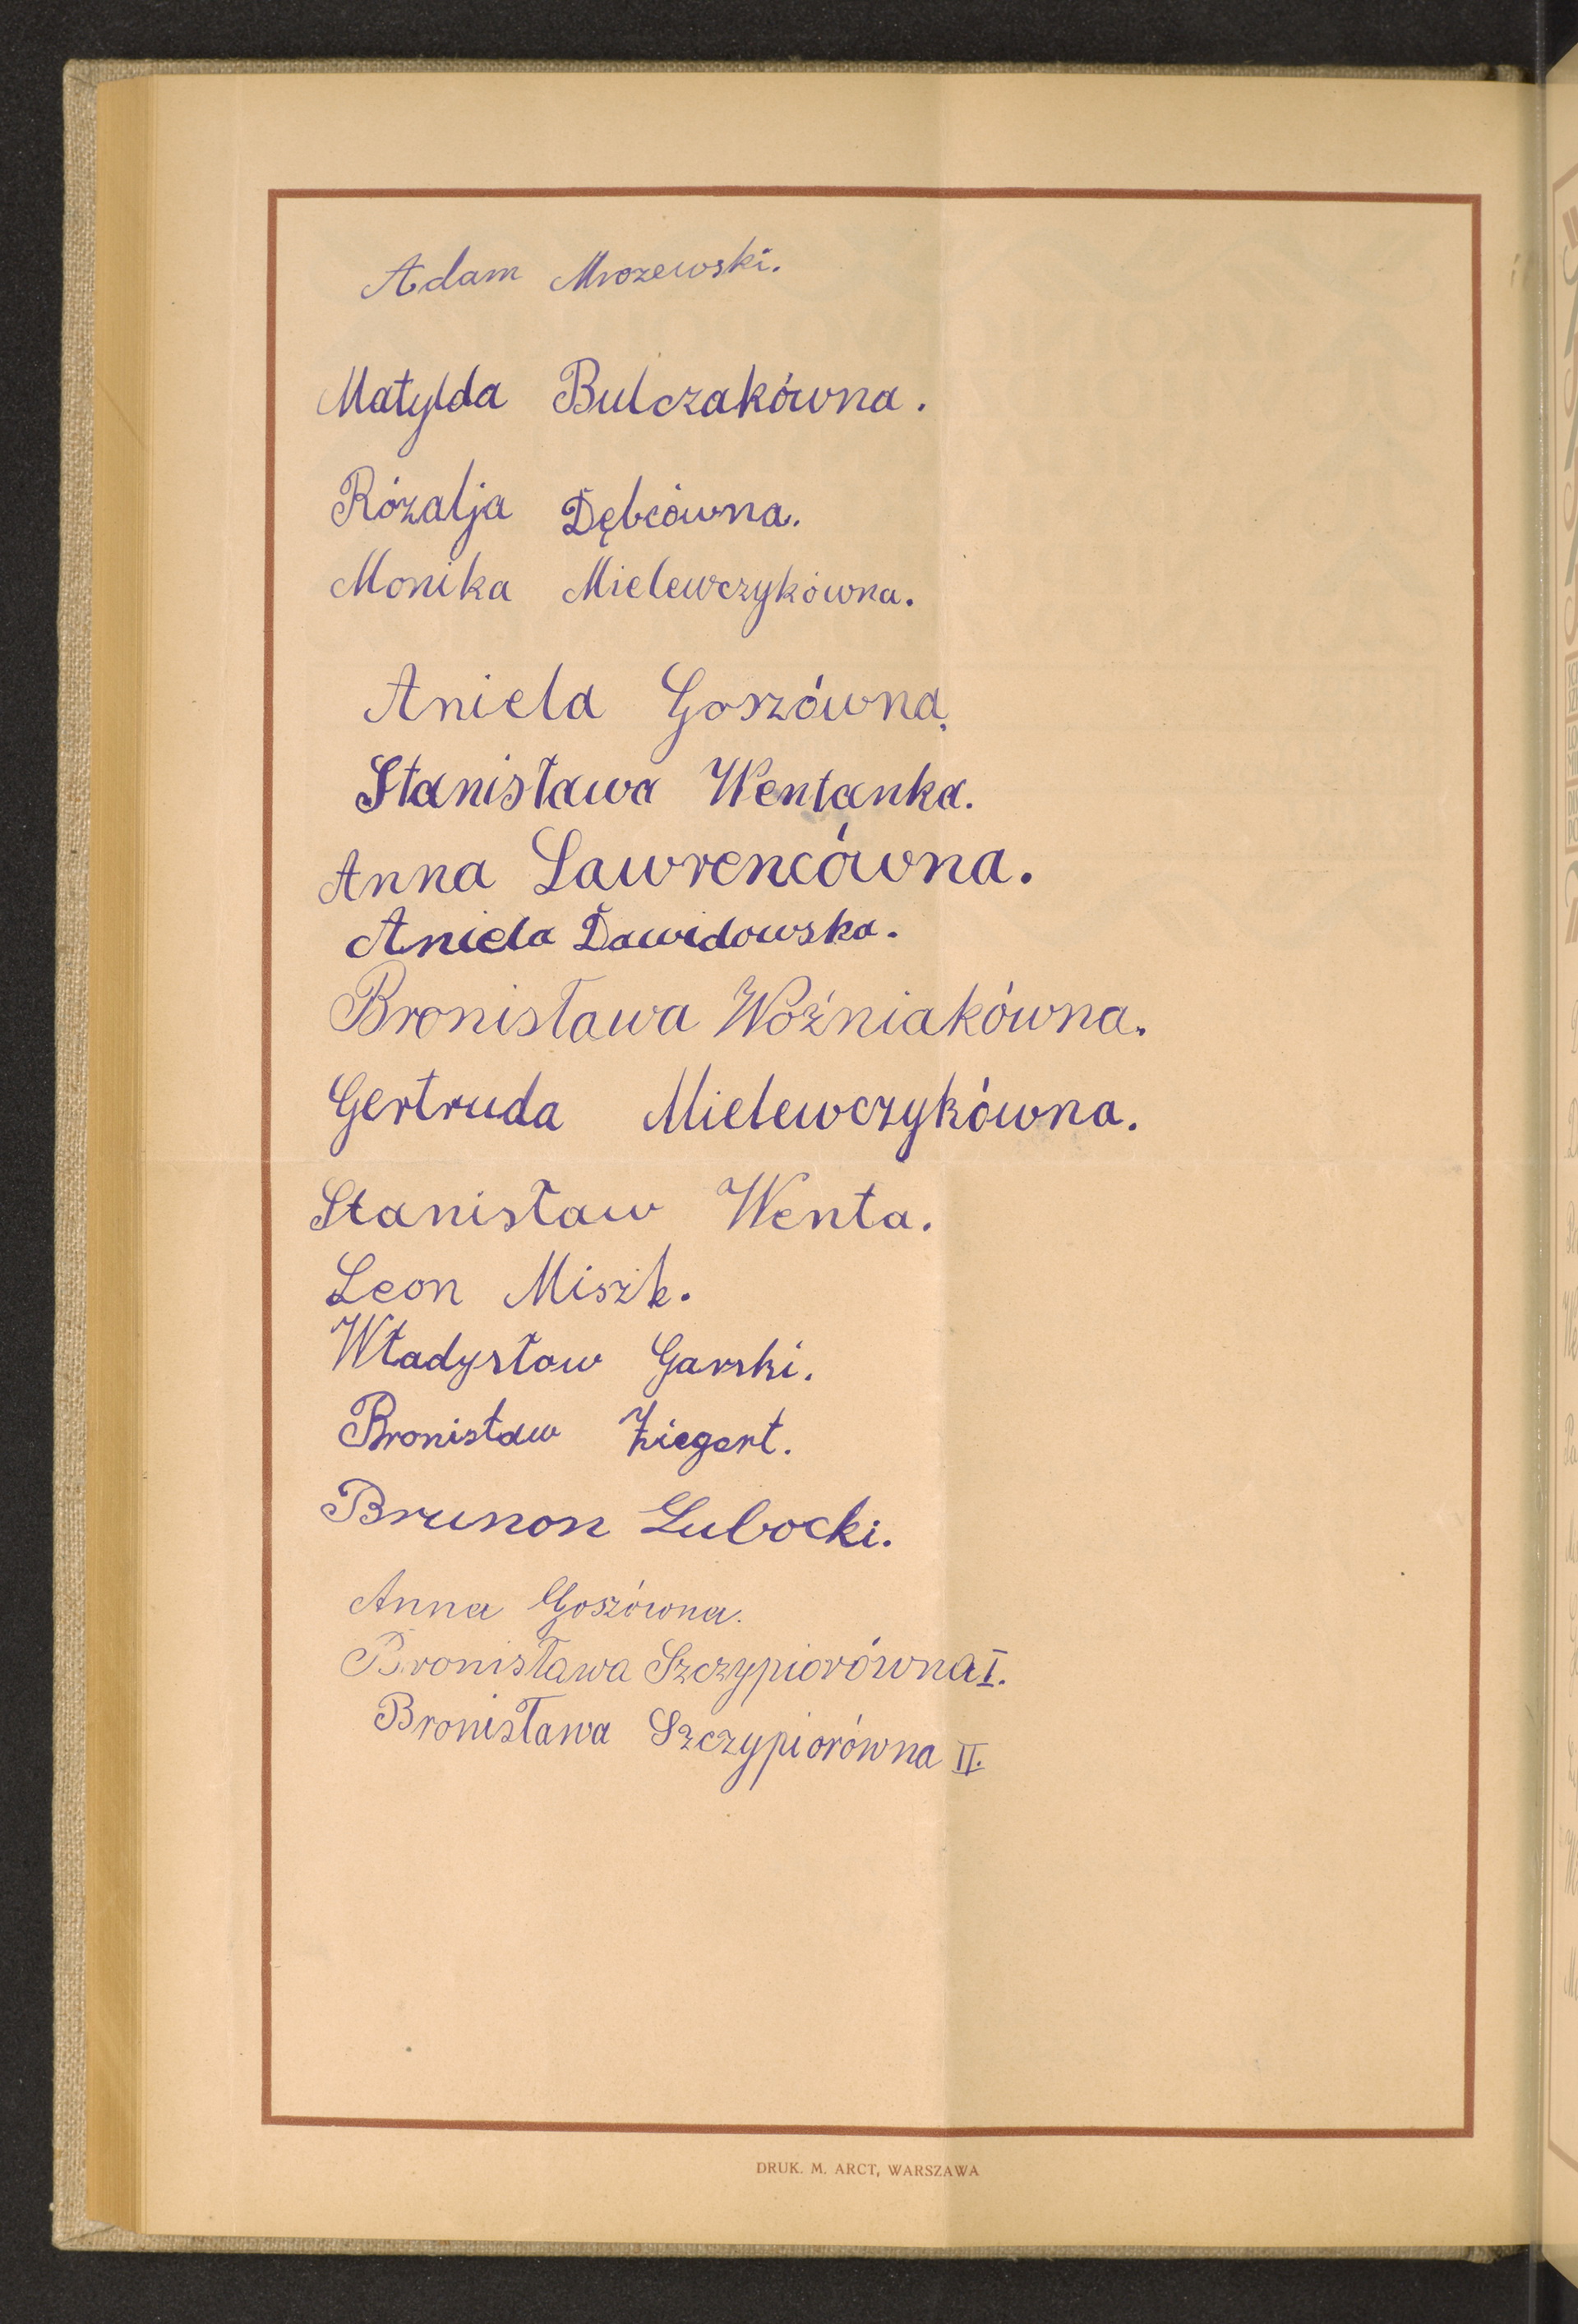 Adam Mrozewski.
Matylda Bulczakówna.
Rózalja Dębcówna.
Monika Mielewczykówna.
Aniela Goszówna.
Stanisława Wentanka.
Anna Lawrencówna.
Aniela Dawidowska.
Bronisława Woźniakówna.
Gertruda Mielewczykówna.
Stanisław Wenta.
Leon Miszk.
Władysław Garski.
Bronisław Ziegert.
Brunon Lubocki.
Anna Goszówna.
Bronisława Szczypiorówna I.
Bronisława Szczypiorówna II.
DRUK. M. ARCT, WARSZAWA